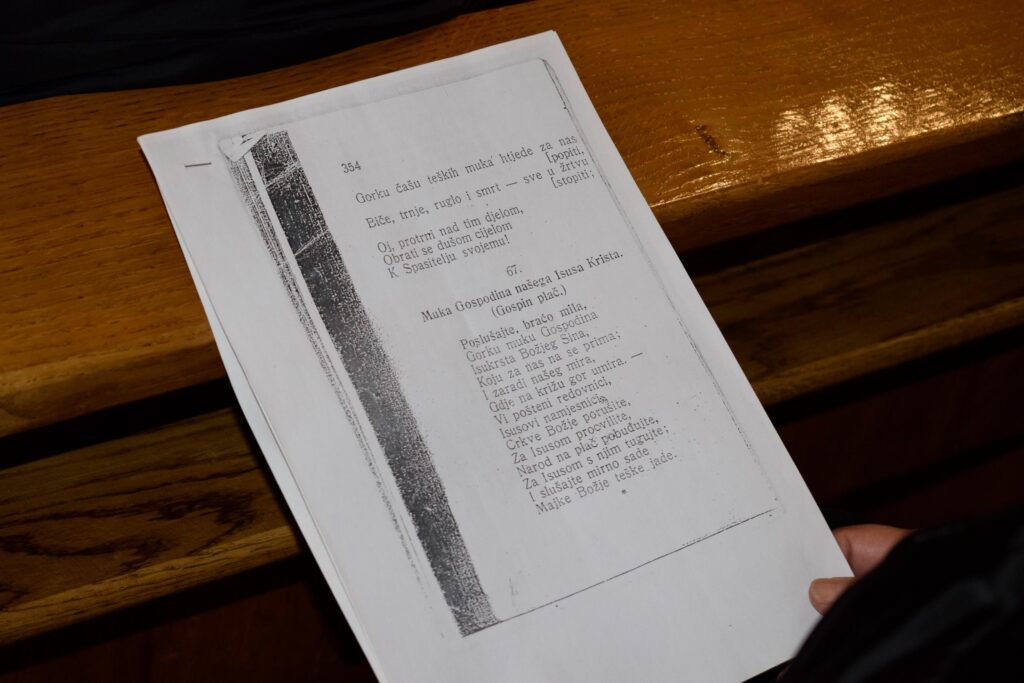 354
Gorku čašu teških muka htjede za nas
[popiti,
Biče, trnje, ruglo i smrt — sve u žrtvu
[stopiti;
Oj, protrni nad tim djelom,
Obrati se dušom cijelom
K Spasitelju svojemu!
67.
Muka Gospodina našega Isusa Krista.
(Gospin plač.)
Poslušajte, braćo mila,
Gorku muku Gospodina
Isukrsta Božjeg Sina,
Koju za nas na se prima;
I zaradi našeg mira,
Gdje na križu gor umira. —
Vi pošteni redovnici,
Isusovi namjesnici,
Crkve Božje porušite,
Za Isusom procvilite,
Narod na plač pobuđujte,
Za Isusom s njim tugujte;
I slušajte mirno sade
Majke Božje teške jade.
*